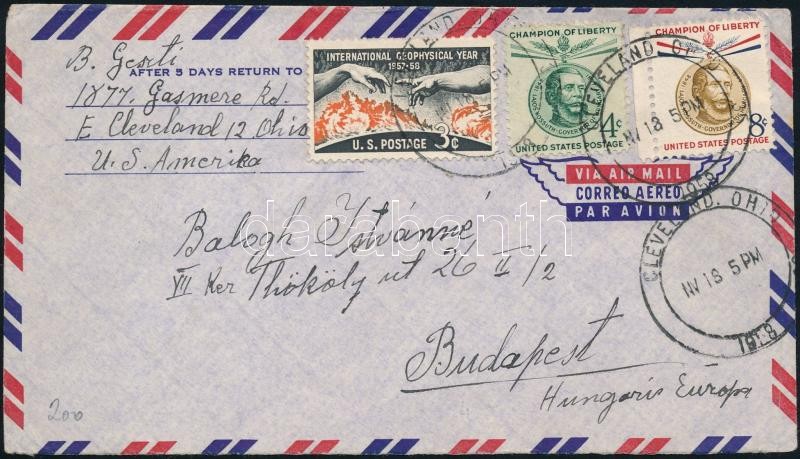 B. Geszti
AFTER 5 DAYS RETURN TO
1877. Gasmere Rd.
E. Cleveland 12 Ohio
U. S. Amerika
INTERNATIONAL GEOPHYSICAL YEAR
1957-58
U. S. POSTAGE 3¢
CHAMPION OF LIBERTY
4¢
UNITED STATES POSTAGE
CHAMPION OF LIBERTY
8¢
UNITED STATES POSTAGE
CLEVELAND, OHIO
NV 18 5 PM
1958
VIA AIR MAIL
CORREO AEREO
PAR AVION
CLEVELAND, OHIO
NV 18 5 PM
1958
darabanth
Balogh Istvánné
VII Ker Thököly út 26 II/2
Budapest
Hungaris Europa
200